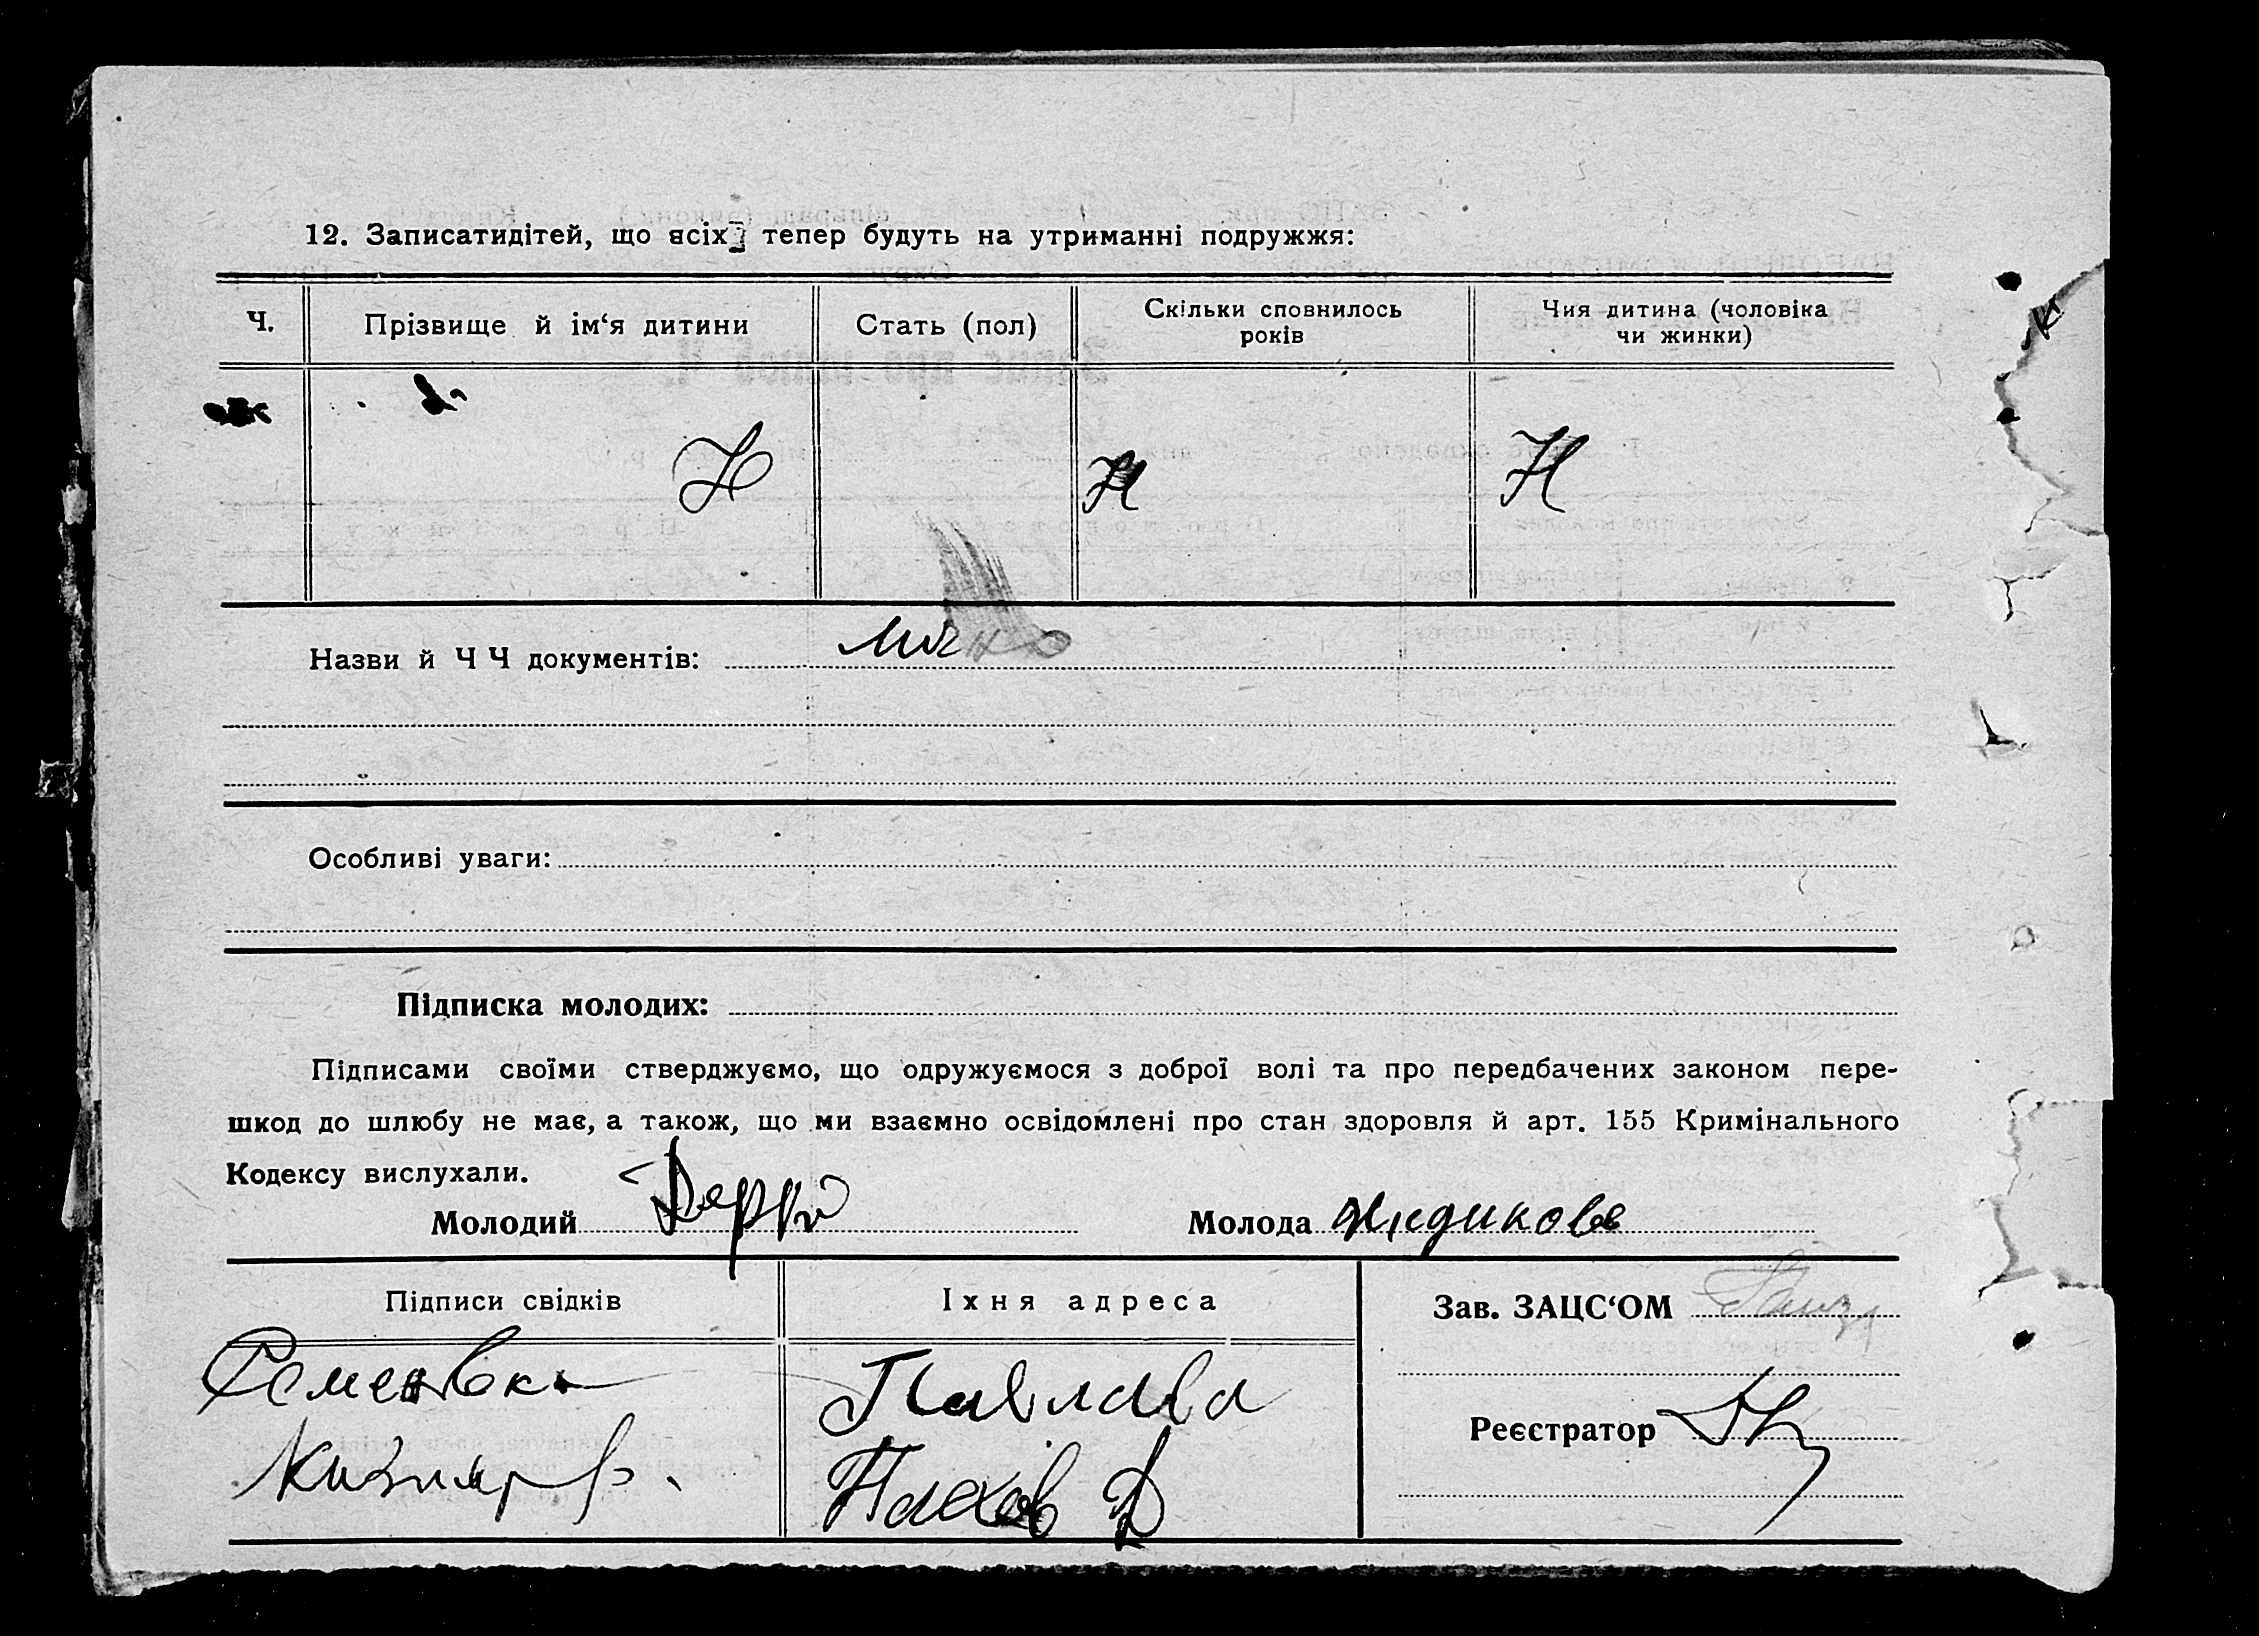 12. Записатидітей, що всіх тепер будуть на утриманні подружжя:
Ч.
Прізвище й ім‘я дитини
Стать (пол)
Скільки сповнилось
років
Чия дитина (чоловіка
чи жинки)
Н
Н
Н
Назви й Ч Ч документів:
Особливі уваги:
Підписка молодих:
Підписами своїми стверджуємо, що одружуємося з доброї волі та про передбачених законом пере-
шкод до шлюбу не має, а також, що ми взаємно освідомлені про стан здоровля й арт. 155 Кримінального
Кодексу вислухали.
Молодий
Молода
Підписи свідків
Їхня адреса
Зав. ЗАЦС‘ОМ
Реєстратор